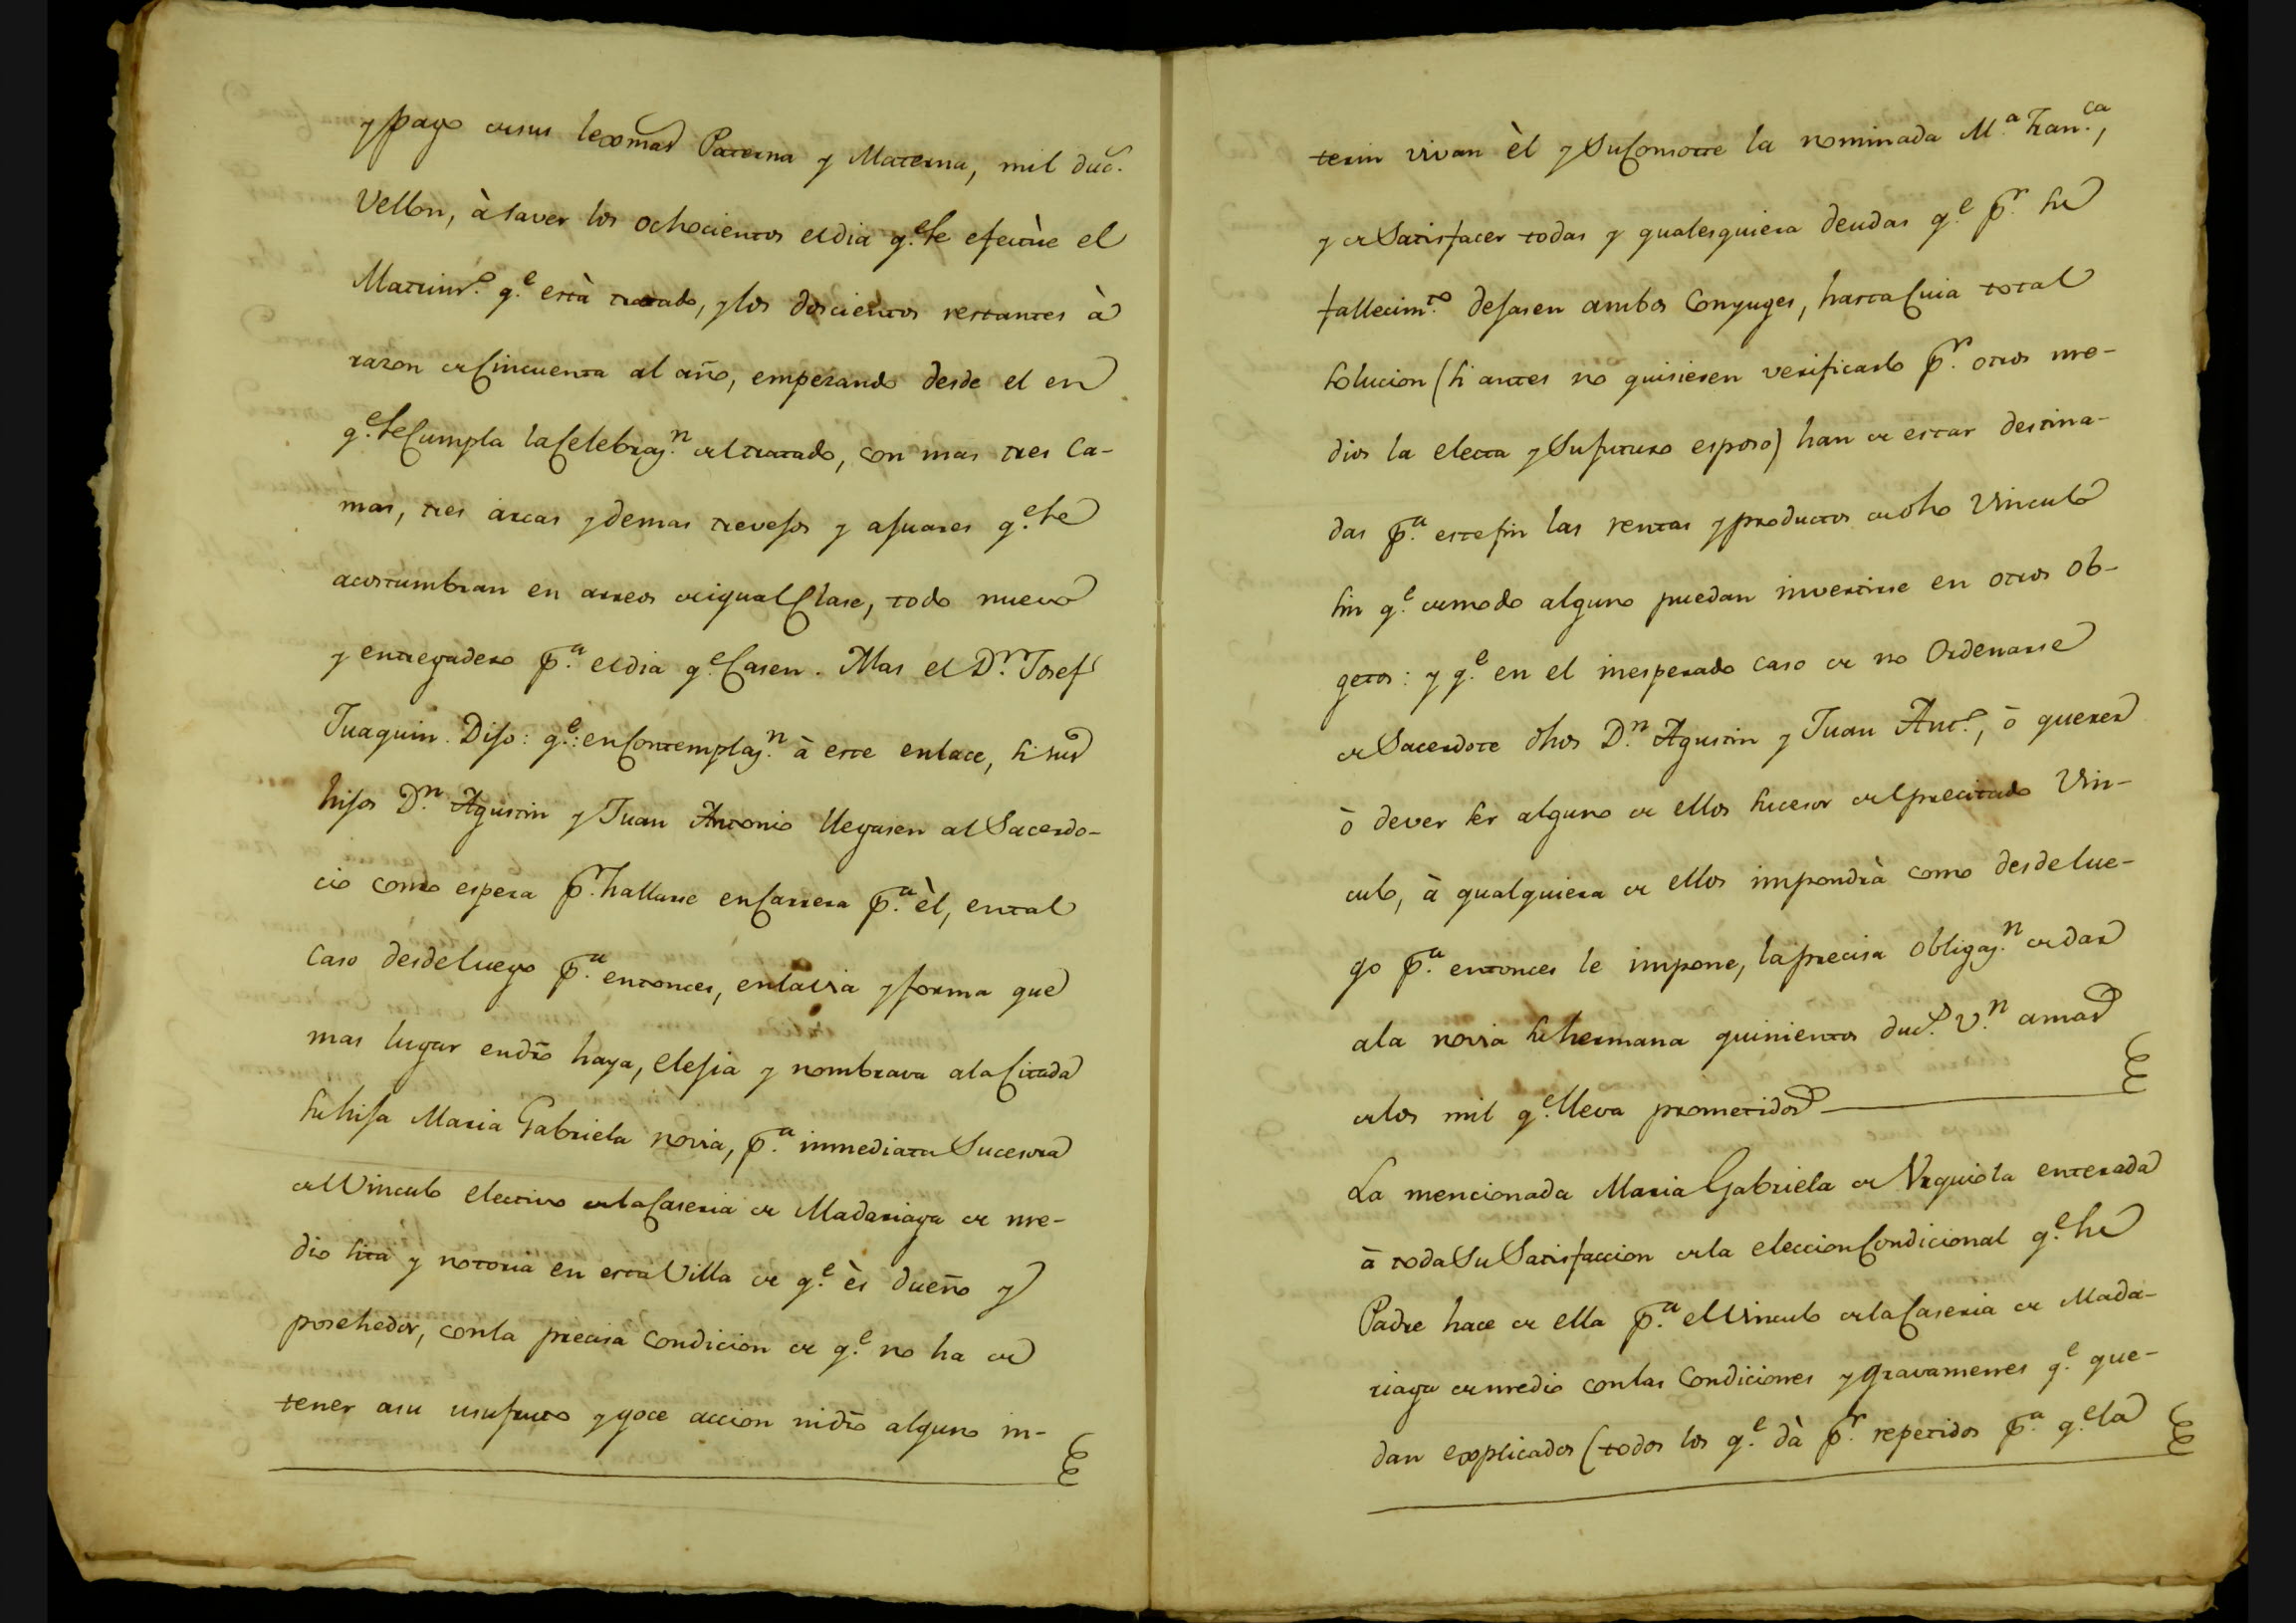 y pago de sus lexmas Paterna y Materna, mil duc.
Vellon, à saver los ochocientos el dia q.e se efectùe el
Matrim.o q.e està tratado, y los doscientos restantes à
razon de Cincuenta al año, empezando desde el en
q.e se Cumpla la Celebraz.n del tratado, con mas tres Ca-
mas, tres arcas y demas trevejos y ajuares q.e se
acostumbran en arreos de igual Clase, todo nuevo
y entregadero p.a el dia q.e Casen. Mas el D.n Josef
Juaquin Dijo: q.e en Contemplaz.n à este enlace, si sus
hijos D.n Agustin y Juan Antonio llegasen al Sacerdo-
cio como espera p.r hallarse en Carrera p.a èl, en tal
Caso desde luego p.a entonces, en la via y forma que
mas lugar en dro haya, elejia y nombrava a la Citada
su hija Maria Gabriela novia, p.a immediata Sucesora
del Vinculo electivo de la Caseria de Madariaga de me-
dio sita y notoria en esta Villa de q.e ès dueño y
posehedor, con la precisa condicion de q.e no ha de
tener a su usufructo y goce accion ni dro alguno in-
terin vivan èl y Su Consorte la nominada M.a Fran.ca,
y de Satisfacer todas y qualesquiera deudas q.e p.r su
fallecim.to dejasen ambos Conyuges, hasta Cuia total
solucion (si antes no quisiesen verificarlo p.r otros me-
dios la electa y Su futuro esposo) han de estar destina-
das p.a este fin las rentas y productos de dho Vinculo
sin q.e de modo alguno puedan invertirse en otros ob-
getos: y q.e en el inesperado caso de no Ordenarse
de Sacerdote dhos D.n Agustin y Juan Ant.o, ò querer
ò dever ser alguno de ellos sucesor del precitado Vin-
culo, à qualquiera de ellos impondrà como desde lue-
go p.a entonces le impone, la precisa obligaz.n de dar
a la novia su hermana quinientos duc.s v.n a mas
de los mil q.e lleva prometidos
La mencionada Maria Gabriela de Vrquiola enterada
à toda Su Satisfaccion de la eleccion Condicional q.e su
Padre hace de ella p.a el Vinculo de la Caseria de Mada-
riaga de medio con las Condiciones y gravamenes q.e que-
dan explicados (todos los q.e dà p.r repetidos p.a q.e la